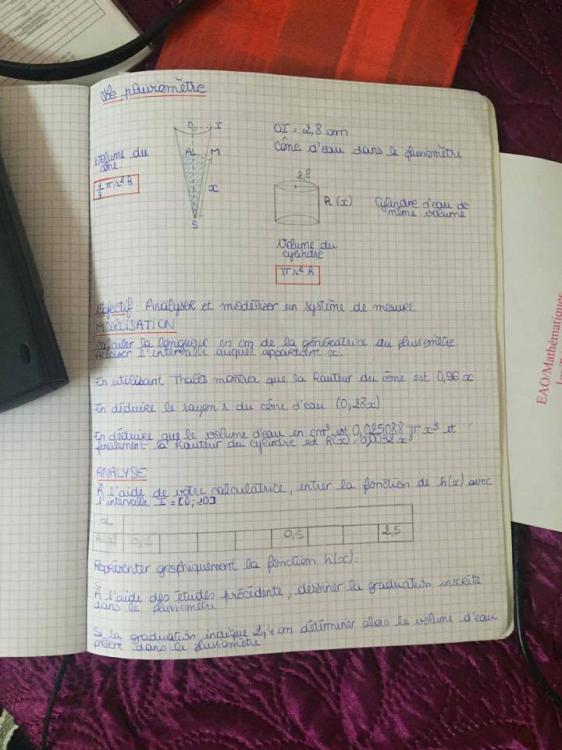 Le pluviomètre
O I
OI = 2,8 cm
Cône d'eau dans le pluviomètre
A M
Volume du
cône
1/3 π r² h
x
S
2,8
h(x)
Cylindre d'eau de
même volume
Volume du
cylindre
π r² h
Objectif : Analyser et modéliser un système de mesure
MODÉLISATION
Calculer la longueur en cm de la génératrice du pluviomètre
Préciser l'intervalle auquel appartient x.
En utilisant Thalès montrer que la hauteur du cône est 0,96 x
En déduire le rayon r du cône d'eau (0,28x)
En déduire que le volume d'eau en cm³ est 0,025088 π x³ et
finalement la hauteur du cylindre est h(x) = 0,0032 x³
ANALYSE
À l'aide de votre calculatrice, entrer la fonction de h(x) avec
l'intervalle I = [0; 10]
x
h(x) 0,5 2,5
Représenter graphiquement la fonction h(x).
À l'aide des études précédente, dessiner la graduation inscrite
dans le pluviomètre
Si la graduation indique 2,4 cm déterminer alors le volume d'eau
dans le pluviomètre
EAO/Mathématiques